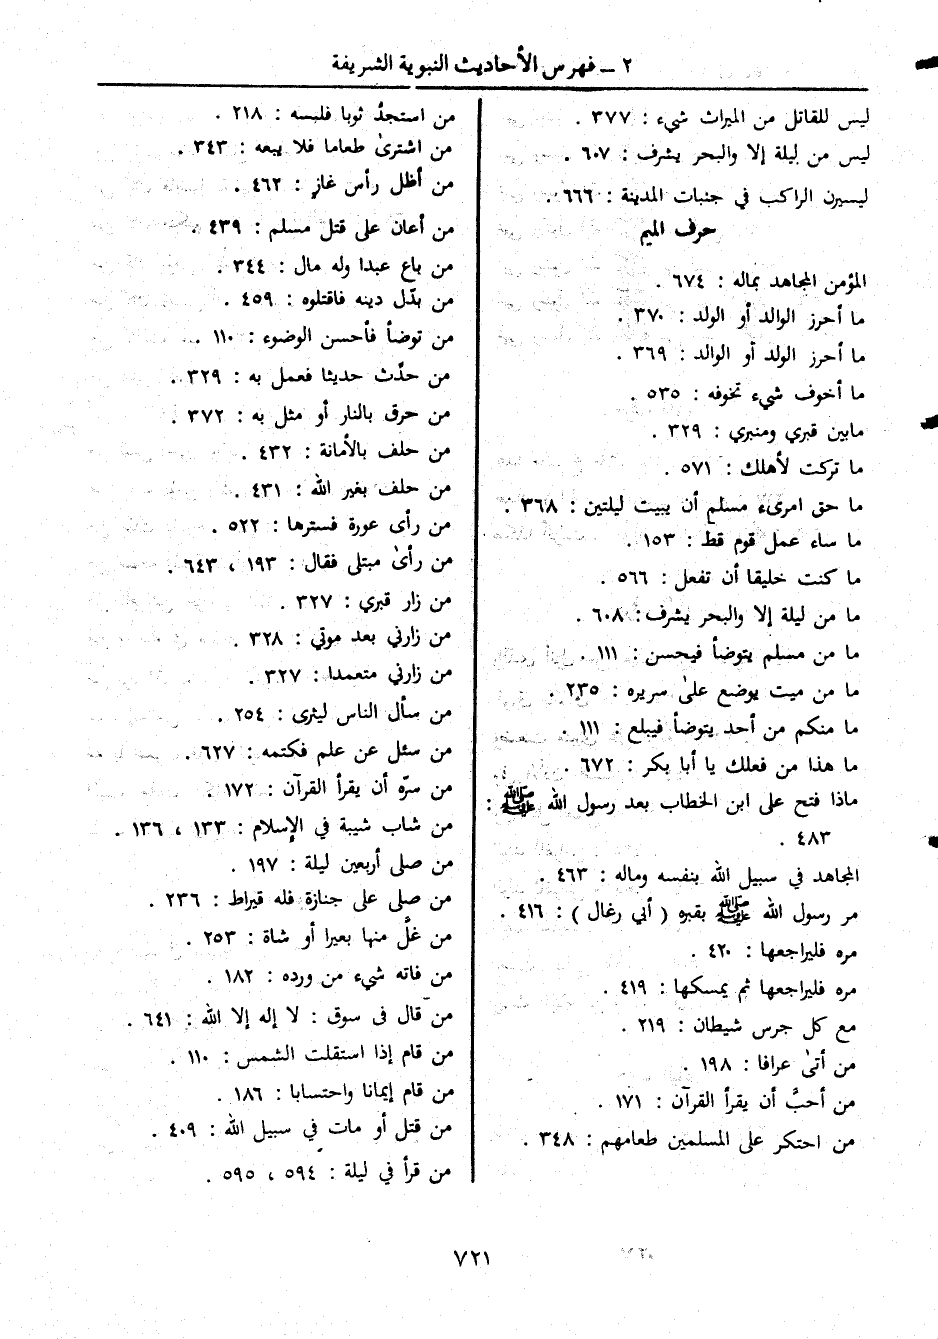 ٢ ـ فهرس الأحاديث النبوية الشريفة
ليس للقاتل من الميراث شيء : ٣٧٧ .
ليس من ليلة إلا والبحر يشرف : ٦٠٧ .
ليسيرن الراكب في جنبات المدينة : ٦٦٦ .
حرف الميم
المؤمن المجاهد بماله : ٦٧٤ .
ما أحرز الوالد أو الولد : ٣٧٠ .
ما أحرز الولد أو الوالد : ٣٦٩ .
ما أخوف شيء تخوفه : ٥٣٥ .
مابين قبري ومنبري : ٣٢٩ .
ما تركت لأهلك : ٥٧١ .
ما حق امرىء مسلم أن يبيت ليلتين : ٣٦٨ .
ما ساء عمل قوم قط : ١٥٣ .
ما كنت خليقا أن تفعل : ٥٦٦ .
ما من ليلة إلا والبحر يشرف : ٦٠٨ .
ما من مسلم يتوضأ فيحسن : ١١١ .
ما من ميت يوضع علىٰ سريره : ٢٣٥ .
ما منكم من أحد يتوضأ فيبلع : ١١١ .
ما هذا من فعلك يا أبا بكر : ٦٧٢ .
ماذا فتح على ابن الخطاب بعد رسول الله ﷺ :
٤٨٣ .
المجاهد في سبيل الله بنفسه وماله : ٤٦٣ .
مر رسول الله ﷺ بقبره ( أبي رغال ) : ٤١٦ .
مره فليراجعها : ٤٢٠ .
مره فليراجعها ثم يمسكها : ٤١٩ .
مع كل جرس شيطان : ٢١٩ .
من أتىٰ عرافا : ١٩٨ .
من أحبَّ أن يقرأ القرآن : ١٧١ .
من احتكر على المسلمين طعامهم : ٣٤٨ .
من استجدّ ثوبا فلبسه : ٢١٨ .
من اشترىٰ طعاما فلا يبعه : ٣٤٣ .
من أظل رأس غازٍ : ٤٦٢ .
من أعان على قتل مسلم : ٤٣٩ .
من باع عبدا وله مال : ٣٤٤ .
من بدّل دينه فاقتلوه : ٤٥٩ .
من توضأ فأحسن الوضوء : ١١٠ .
من حدّث حديثا فعمل به : ٣٢٩ .
من حرق بالنار أو مثل به : ٣٧٢ .
من حلف بالأمانة : ٤٣٢ .
من حلف بغير الله : ٤٣١ .
من رأى عورة فسترها : ٥٢٢ .
من رأىٰ مبتلى فقال : ١٩٣ ، ٦٤٣ .
من زار قبري : ٣٢٧ .
من زارني بعد موتي : ٣٢٨ .
من زارني متعمدا : ٣٢٧ .
من سأل الناس ليثرى : ٢٥٤ .
من سئل عن علم فكتمه : ٦٢٧ .
من سرّه أن يقرأ القرآن : ١٧٢ .
من شاب شيبة في الإسلام : ١٣٣ ، ١٣٦ .
من صلى أربعين ليلة : ١٩٧ .
من صلى على جنازة فله قيراط : ٢٣٦ .
من غلَّ منها بعيرا أو شاة : ٢٥٣ .
من فاته شيء من ورده : ١٨٢ .
من قال فى سوق : لا إله إلا الله : ٦٤١ .
من قام إذا استقلت الشمس : ١١٠ .
من قام إيمانا واحتسابا : ١٨٦ .
من قتل أو مات في سبيل الله : ٤٠٩ .
من قرأ في ليلة : ٥٩٤ ، ٥٩٥ .
٧٢١